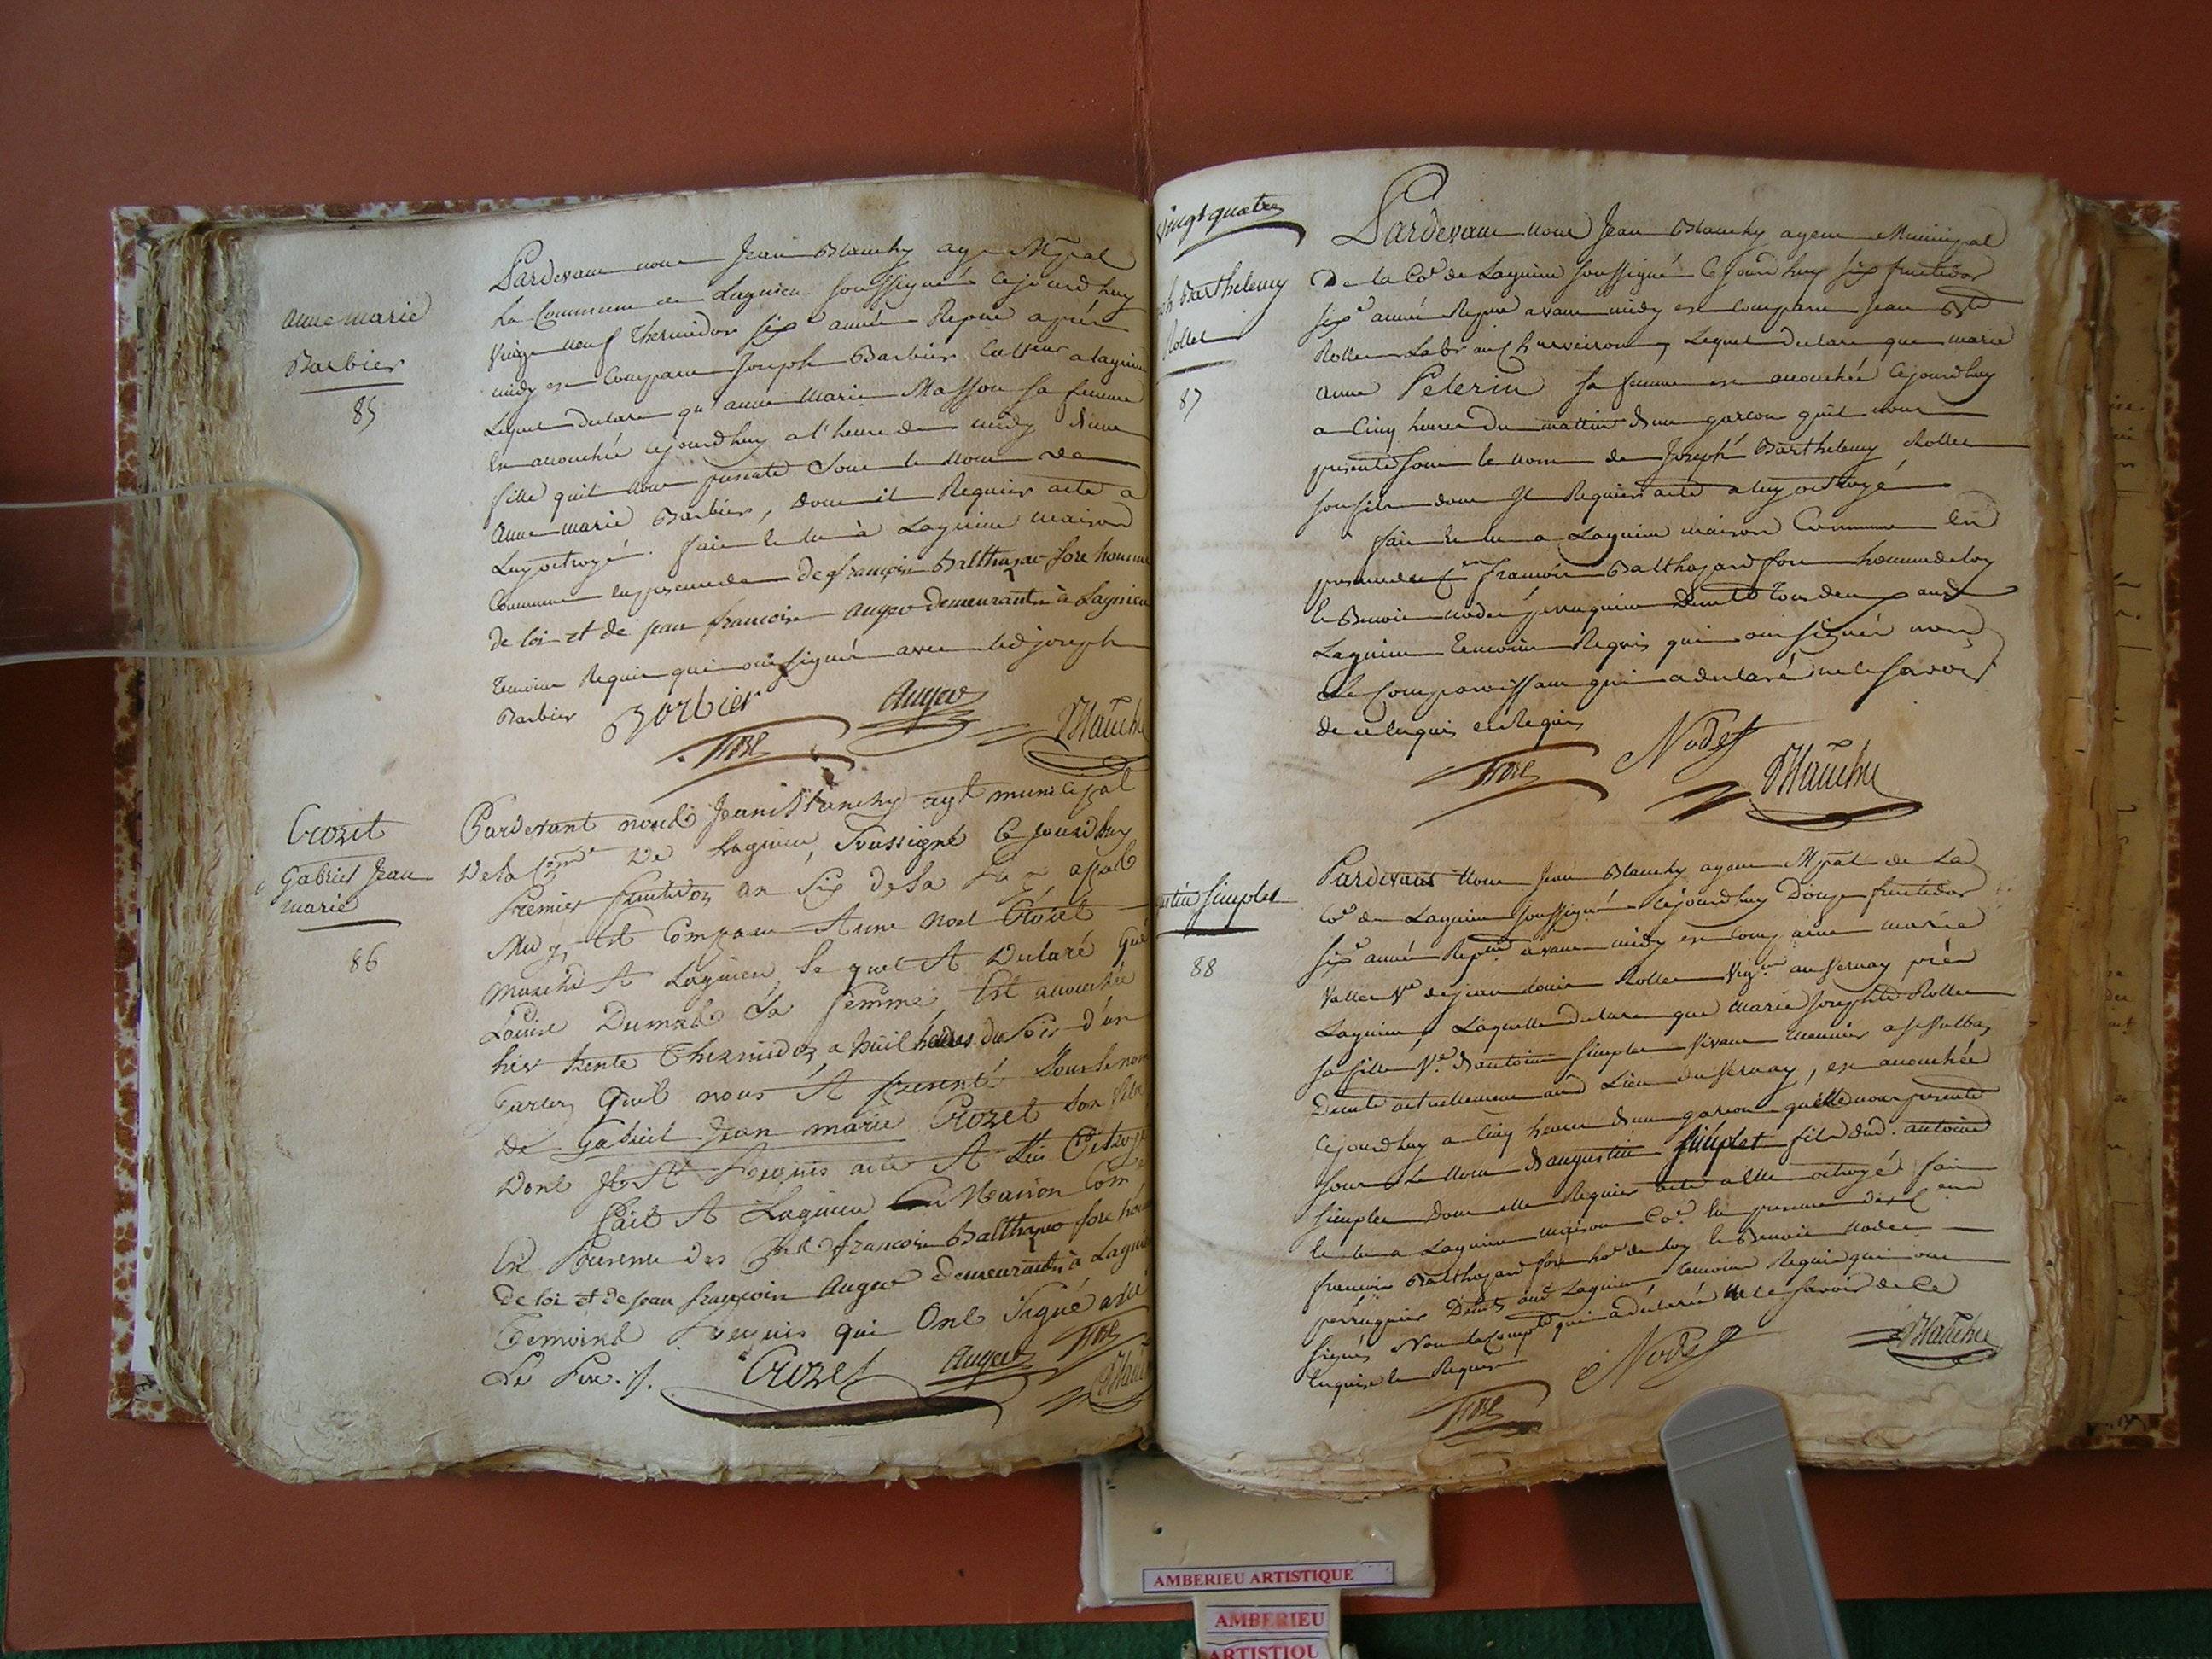 anne marie
Barbier
85
Pardevant nous Jean Blanchy agt Mpal
La Commune de Lagnieu soussigné Cejourd'huy
Vingt neuf Thermidor six.e année Repue après
midy est Comparu Joseph Barbier Cultteur a lagnieu
Lequel declare qu'anne Marie Masson sa femme
est accouchée cejourd'huy a l'heure de midy d'une
fille quil nous presente sous le nom de
Anne marie Barbier, dont il Requier acte a
Luy octroyé. fait et lu à Lagnieu maison
Commune en presence de françois Balthazar fore homme
de loi et de jean françois auger demeurants à Lagnieu
Temoins Requis qui ont signé avec led joseph
Barbier
Borbier
Auger
fore
Blanchy
Crozet
Gabriel Jean
marie
86
Pardevant nous Jean Blanchy agt municipal
De la Comne De Lagnieu, Soussigné Cejourdhuy
Premier fructidor an Six de la après
Midy, Est Comparu Anne Noel Crozet
marchd A Lagnieu Le quel A Declaré Que
Louise Dumas Sa femme Est accouchée
hier trente Thermidor a huit heures du Soir d'un
Garcon Quil nous A presenté Sous le nom
De Gabriel Jean marie Crozet Son fils
Dont Il A Requis acte A Lui Octroyé
fait A Lagnieu En Maison Come
En Presence des françois Balthazar fore homme
de loi et de jean françois Auger demeurants à Lagnieu
Temoins Requis qui Ont Signé avec
Le Pere ./.
Crozet
Auger
fore
Blanchy
Vingt quatre
ph Barthelemy
Rollet
87
Pardevant nous Jean Blanchy agent Municipal
De la Co.e de Lagnieu soussigné Cejourd'huy six fructidor
six.e année Repue avant midy est comparu Jean Bte
Rollet Labr au Charveiron, Lequel declare que marie
anne Pelerin sa femme est accouchée Cejourdhuy
a Cinq heures du mattin d'un garcon quil nous
presente sous le nom de Joseph Barthelemy Rollet
son fils dont Il Requier acte a luy octroyé
fait et lu a Lagnieu maison Commune En
presence des C.en françois Balthazard fore homme de loy
et Benoit nodet perruquier demts tous deux aud
Lagnieu Temoins Requis qui ont signés non
Le Comparoissant qui a declaré ne le savoir
de ce enquis et Requis
fore
Nodet
Blanchy
ustin Simplet
88
Pardevant Nous Jean Blanchy agent Mpal de La
Co.e de Lagnieu soussigné Cejourdhuy Douze fructidor
six.e année Repue avant midy est comparue marie
Vallet V.e de jean louis Rollet Vigon au Vernay près
Lagnieu, Laquelle declare que Marie Josephte Rollet
sa fille V.e d'antoine Simplet vivant meunier a st sulbas
Demte actuellement aud Lieu du Vernay, est accouchée
Cejourd'huy a Cinq heures d'un garcon qu'elle nous presente
sous Le Nom d'augustin Simplet fils dud. antoine
Simplet dont elle Requier acte a Elle octroyé fait
et lu a Lagnieu maison Co.e En presence des C.ens
françois Balthazard fore ho.e de loy et Benoit Nodet
perruquier Demts aud Lagnieu, temoins Requis qui ont
signés Non la Compte qui a declarée Ne le savoir de Ce
Enquise et Requise
fore
Nodet
Blanchy
AMBERIEU ARTISTIQUE
AMBERIEU
ARTISTIQU